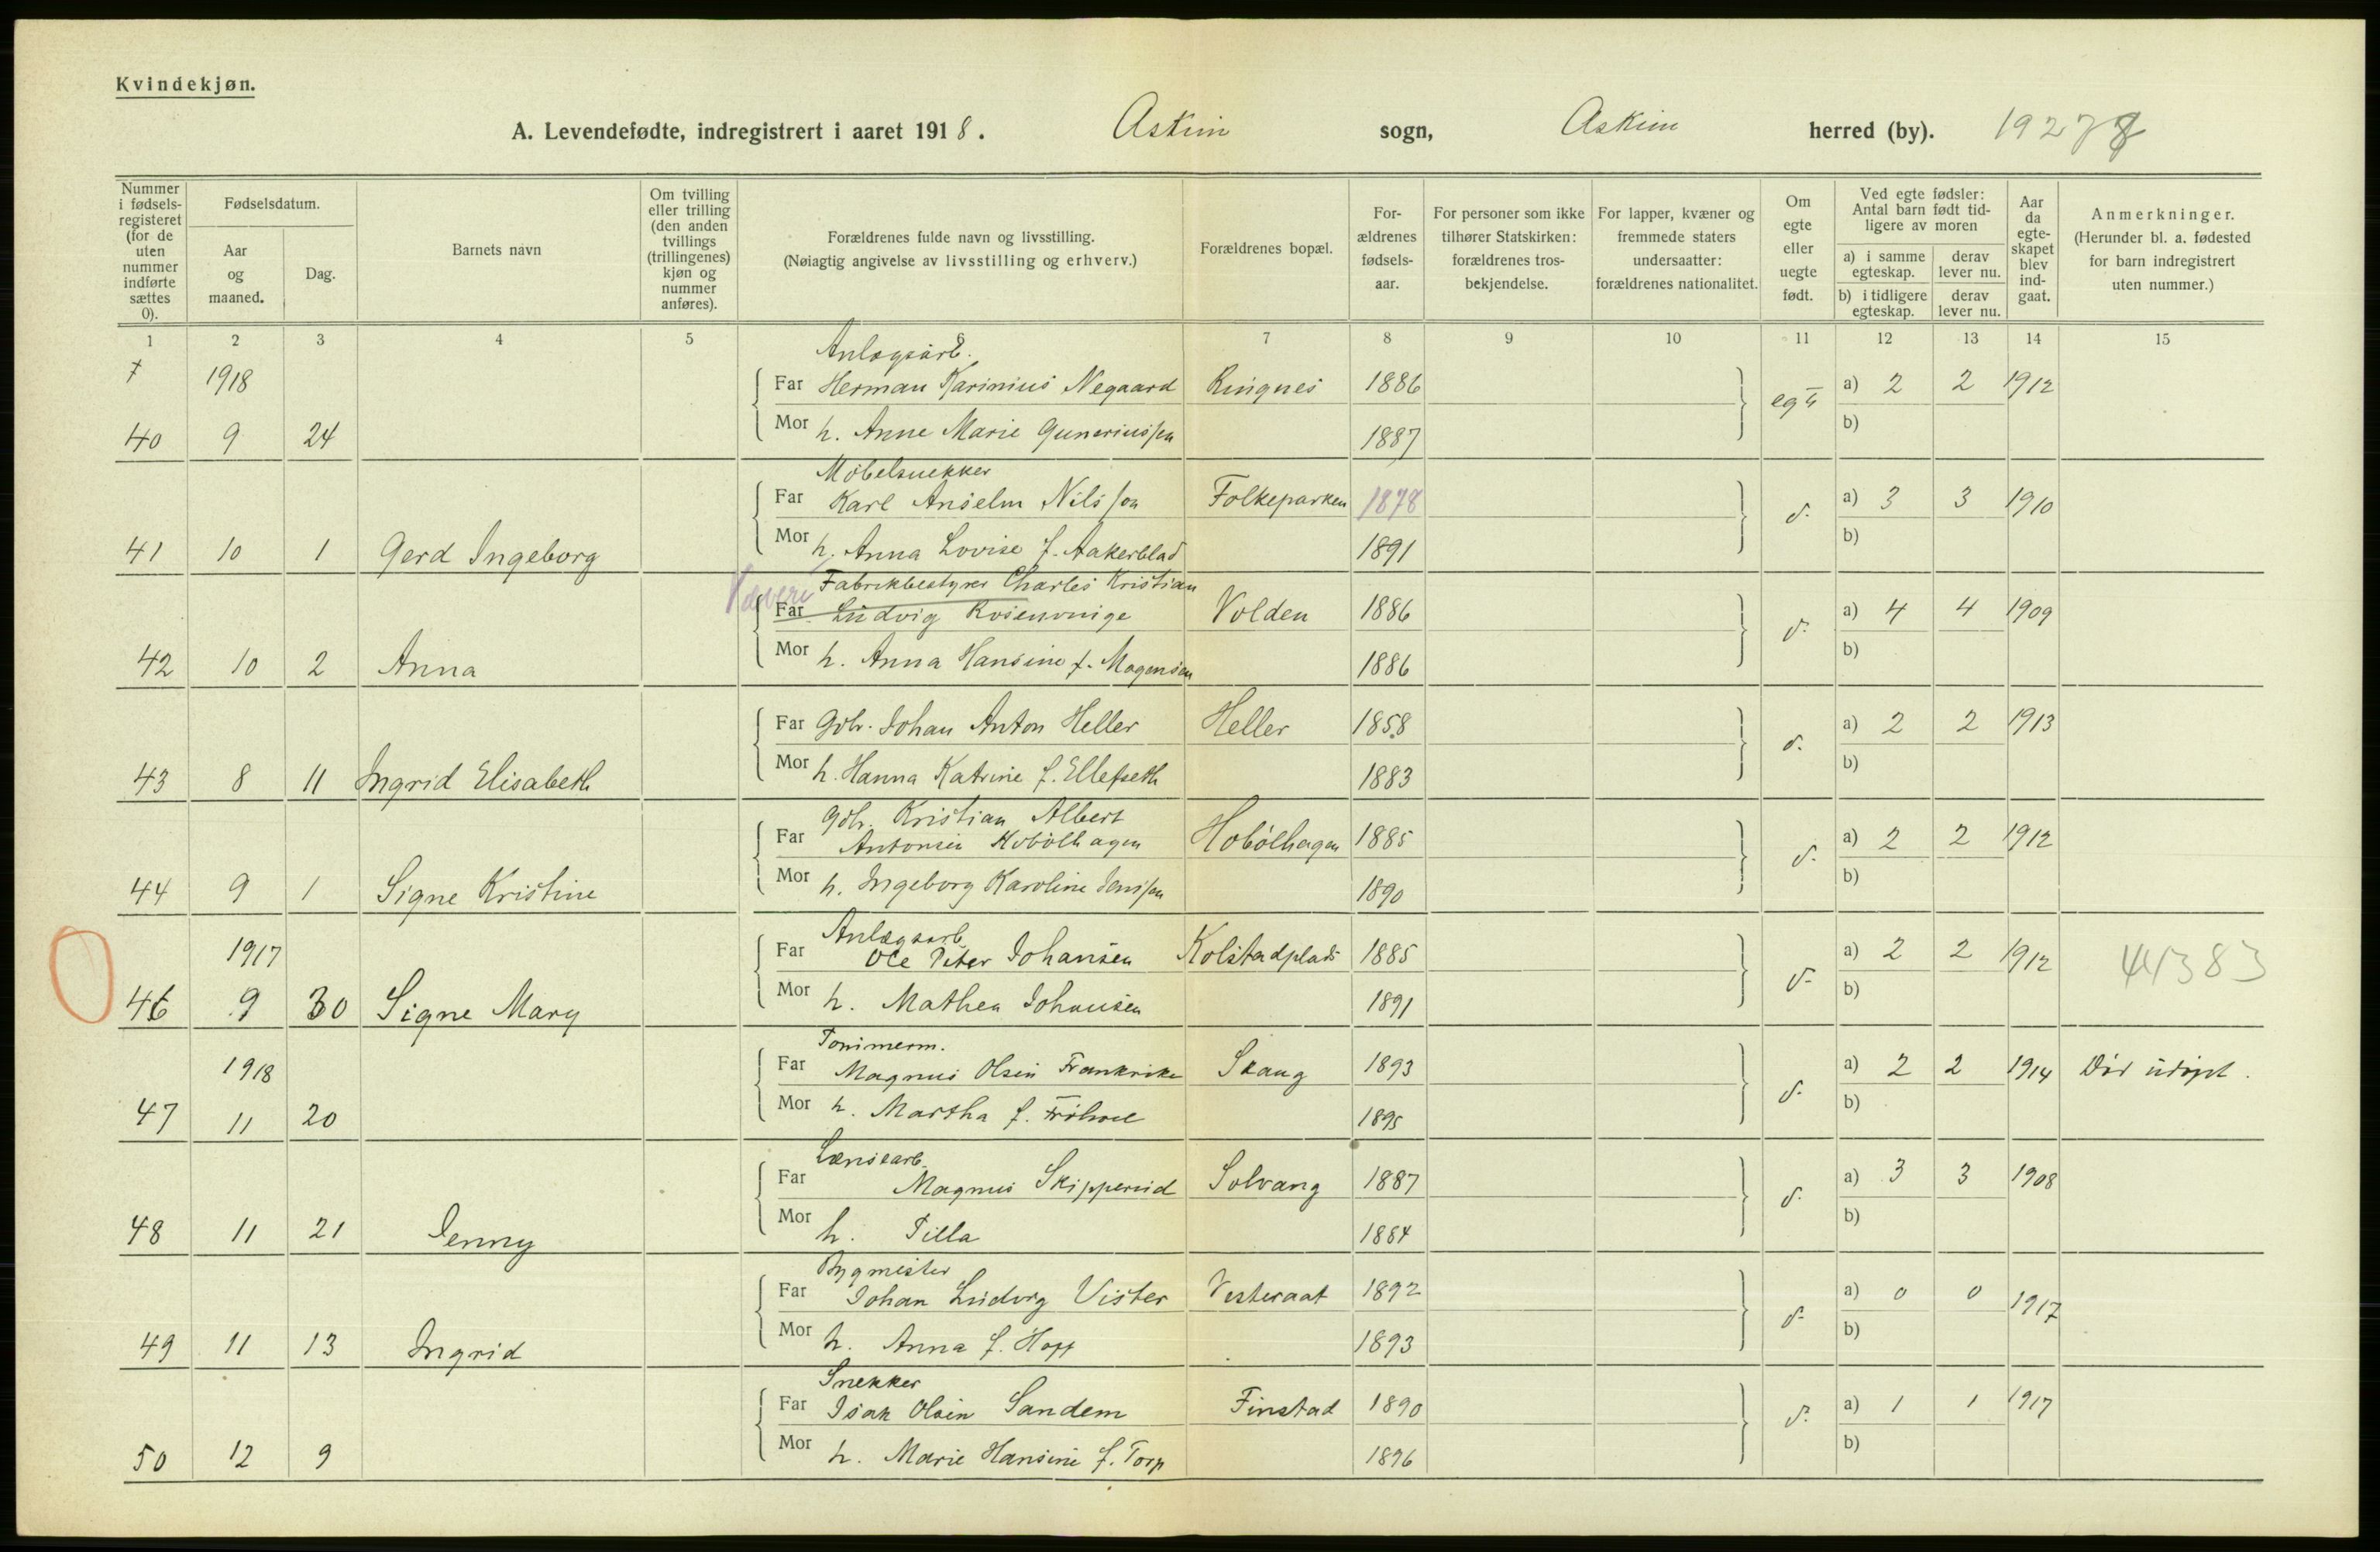 Kvindekjøn.
A. Levendefødte, indregistrert i aaret 1918. Askim sogn, Askim herred (by). 1927
Nummer i fødsels-registeret (for de uten nummer indførte sættes 0).
Fødselsdatum.
Aar og maaned.
Dag.
Barnets navn
Om tvilling eller trilling (den anden tvillings (trillingenes) kjøn og nummer anføres).
Forældrenes fulde navn og livsstilling.
(Nøiagtig angivelse av livsstilling og erhverv.)
Forældrenes bopæl.
For-ældrenes fødsels-aar.
For personer som ikke tilhører Statskirken: forældrenes tros-bekjendelse.
For lapper, kvæner og fremmede staters undersaatter: forældrenes nationalitet.
Om egte eller uegte født.
Ved egte fødsler: Antal barn født tid-ligere av moren
a) i samme egteskap. derav lever nu.
b) i tidligere egteskap. derav lever nu.
Aar da egte-skapet blev ind-gaat.
Anmerkninger.
(Herunder bl. a. fødested for barn indregistrert uten nummer.)
1 2 3 4 5 6 7 8 9 10 11 12 13 14 15
Anlægsarb.
1918 Far Herman Karinius Negaard Ringnes 1886 a) 2 2 1912
40 9 24 Mor h. Anne Marie Gunerius/en 1887 b)
Møbelsnekker
Far Karl Anselm Nils/on Folkeparken 1878 a) 3 3 1910
41 10 1 Gerd Ingeborg Mor h. Anna Lovise f. Aakerblad 1891 b)
Væveri Fabrikbestyrer Charles Kristian
Far Ludvig Volden 1886 a) 4 4 1909
42 10 2 Anna Mor h. Anna Hansine f. Mogensen 1886 b)
Far Gbr. Johan Anton Heller Heller 1858 a) 2 2 1913
43 8 11 Ingrid Elisabeth Mor h. Hanna Katrine f. Ellefseth 1883 b)
Gbr. Kristian Albert
Far Antonsen Hobølhagen Hobølhagen 1885 a) 2 2 1912
44 9 1 Signe Kristine Mor h. Ingeborg Karoline Jens/en 1890 b)
Anlægsarb.
1917 Far Ole Peter Johansen Kolstadplads 1885 a) 2 2 1912 44383
46 9 30 Signe Mary Mor h. Mathea Johansen 1891 b)
Tømmerm.
1918 Far Magnus Olsen Frankrike Skaug 1893 a) 2 2 1914 Død udøpt.
47 11 20 Mor h. Martha f. 1895 b)
Lænsearb.
Far Magnus Skipperud Solvang 1887 a) 3 3 1908
48 11 21 Jenny Mor h. Tilla 1884 b)
Bygmester
Far Johan Ludvig Vister Vesteraat 1892 a) 0 0 1917
49 11 13 Ingrid Mor h. Anna f. Hopp 1893 b)
Snekker
Far Isak Olsen Sandem Finstad 1890 a) 1 1 1917
50 12 9 Mor h. Marie Hansine f. Torp 1896 b)